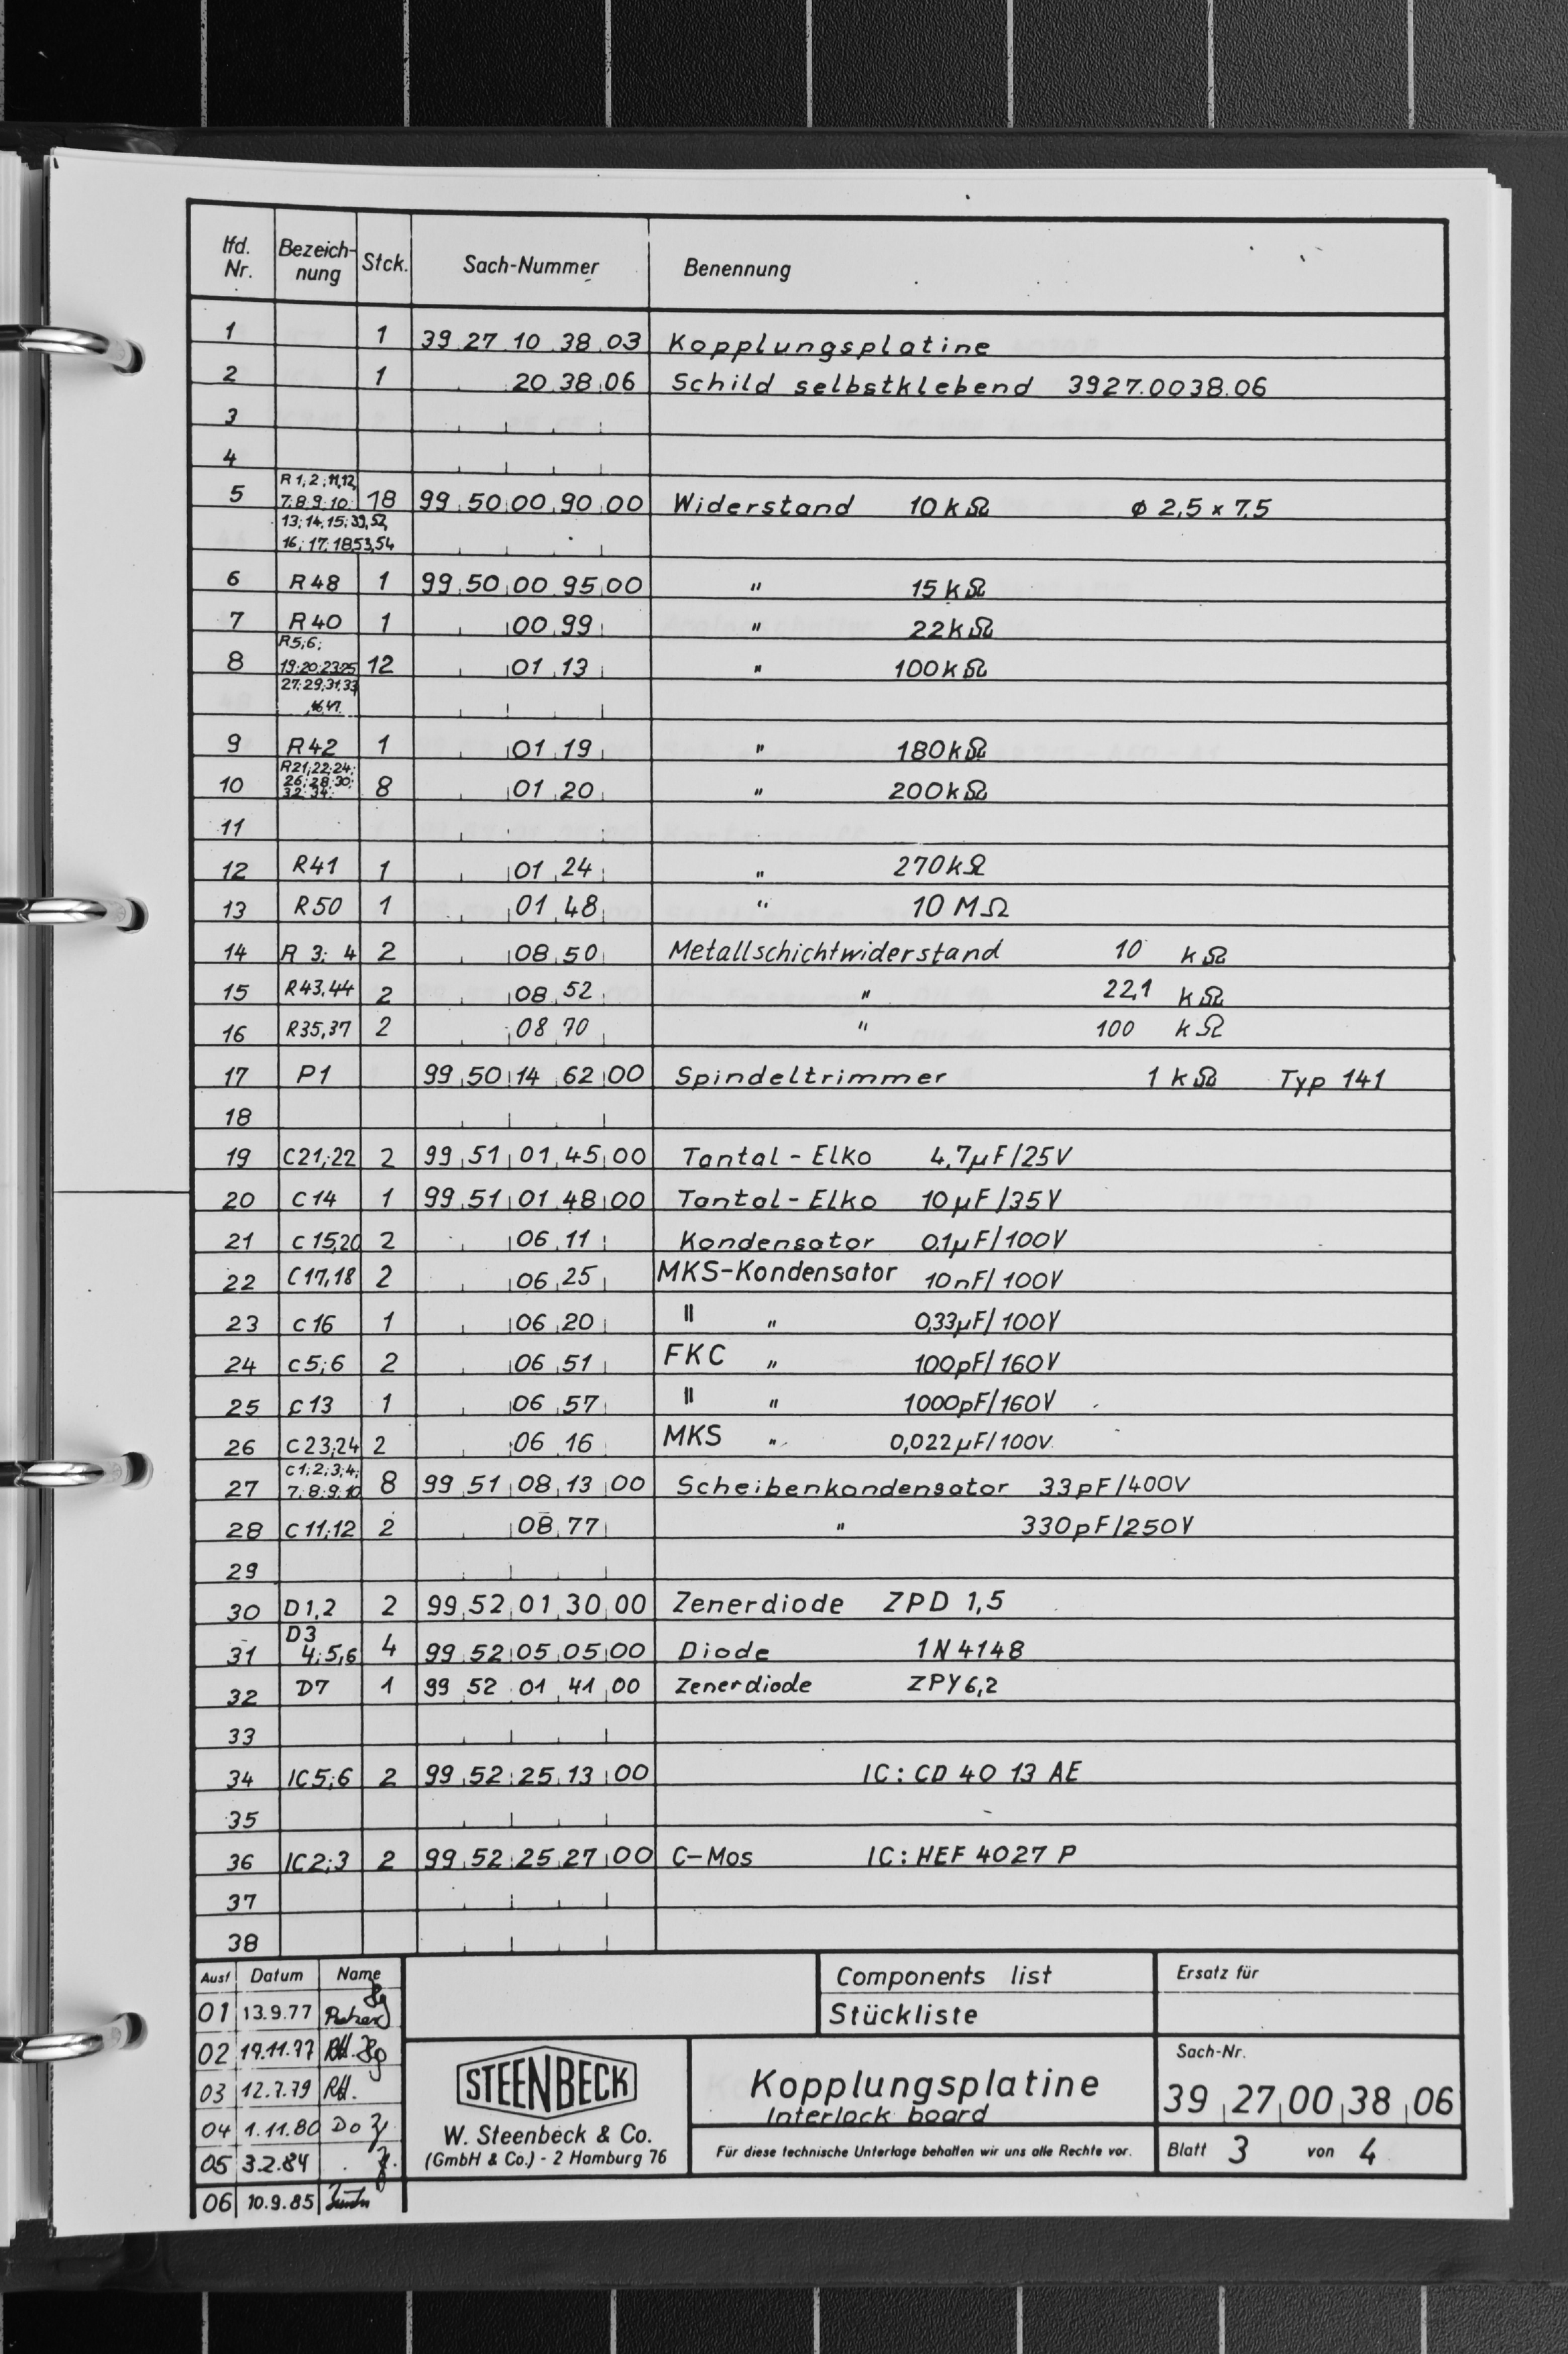 lfd. Nr. Bezeich-nung Stck. Sach-Nummer Benennung
1 1 39 27 10 38 03 Kopplungsplatine
2 1 20 38 06 Schild selbstklebend 3927.0038.06
3
4
R1,2;11,12,
5 7;8;9;10; 18 99 50 00 90 00 Widerstand 10kΩ ø 2,5 x 7,5
13;14;15;39,52,
16;17;18,53,54
6 R48 1 99 50 00 95 00 " 15kΩ
7 R40 1 00 99 " 22kΩ
R5;6;
8 19;20;23;25 12 01 13 " 100kΩ
27;29;31;33
46,47
9 R42 1 01 19 " 180kΩ
R21;22;24;
10 26;28;30; 8 01 20 " 200kΩ
32;34;
11
12 R41 1 01 24 " 270kΩ
13 R50 1 01 48 " 10 MΩ
14 R 3; 4 2 08 50 Metallschichtwiderstand 10 kΩ
15 R43,44 2 08 52 " 22,1 kΩ
16 R35,37 2 08 70 " 100 kΩ
17 P1 99 50 14 62 00 Spindeltrimmer 1 kΩ Typ 141
18
19 C21;22 2 99 51 01 45 00 Tantal-Elko 4,7µF/25V
20 C14 1 99 51 01 48 00 Tantal-Elko 10µF/35V
21 C15,20 2 06 11 Kondensator 0,1µF/100V
22 C17,18 2 06 25 MKS-Kondensator 10nF/100V
23 C16 1 06 20 " " 0,33µF/100V
24 C5;6 2 06 51 FKC " 100pF/160V
25 C13 1 06 57 " " 1000pF/160V
26 C23,24 2 06 16 MKS " 0,022µF/100V
C1;2;3;4;
27 7;8;9;10 8 99 51 08 13 00 Scheibenkondensator 33pF/400V
28 C11;12 2 08 77 " 330pF/250V
29
30 D1,2 2 99 52 01 30 00 Zenerdiode ZPD 1,5
D3
31 4;5,6 4 99 52 05 05 00 Diode 1N4148
32 D7 1 99 52 01 41 00 Zenerdiode ZPY6,2
33
34 IC5;6 2 99 52 25 13 00 IC: CD 40 13 AE
35
36 IC2;3 2 99 52 25 27 00 C-Mos IC: HEF 4027 P
37
38
Ausf Datum Name
01 13.9.77
02 17.11.77 RH.
03 12.7.79 RH.
04 1.11.80 Do
05 3.2.84
06 10.9.85
Components list
Stückliste
Ersatz für
STEENBECK
W. Steenbeck & Co.
(GmbH & Co.) - 2 Hamburg 76
Kopplungsplatine
Interlock board
Für diese technische Unterlage behalten wir uns alle Rechte vor.
Sach-Nr.
39 27 00 38 06
Blatt 3 von 4